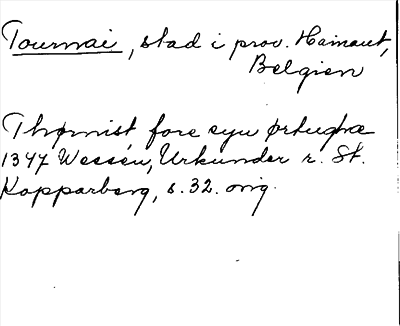 Tournai, stad i prov. Hainaut,
Belgien
Thørnist, fore syu ørtughæ
1347 Wessén, Urkunder r. St.
Kopparberg, s. 32. orig.